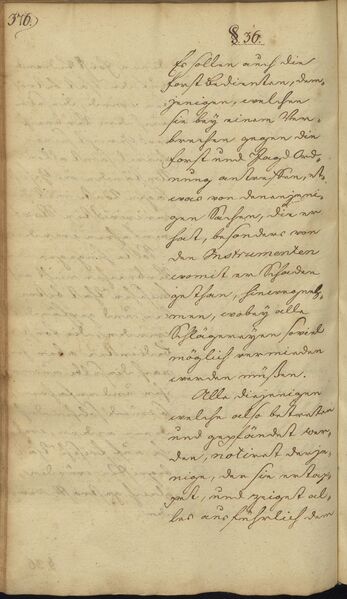 376.
§. 36.
Es sollen auch die
Forstbedienten, dem-
jenigen, welchen
sie bey einem Ver-
brechen gegen die
Forst und Jagd Ord-
nung antreffen, et-
was von denenjeni-
gen Sachen, die er
hat, besonders von
den Instrumenten
womit er Schaden
gethan, hinwegneh-
men, wobey alle
Schlägereyen soviel
möglich vermieden
werden müßen.
Alle diejenigen
welche also betreten
und gepfändet wer-
den, notiret derje-
nige, der sie ertap-
pet, und zeiget al-
les ausführlich dem